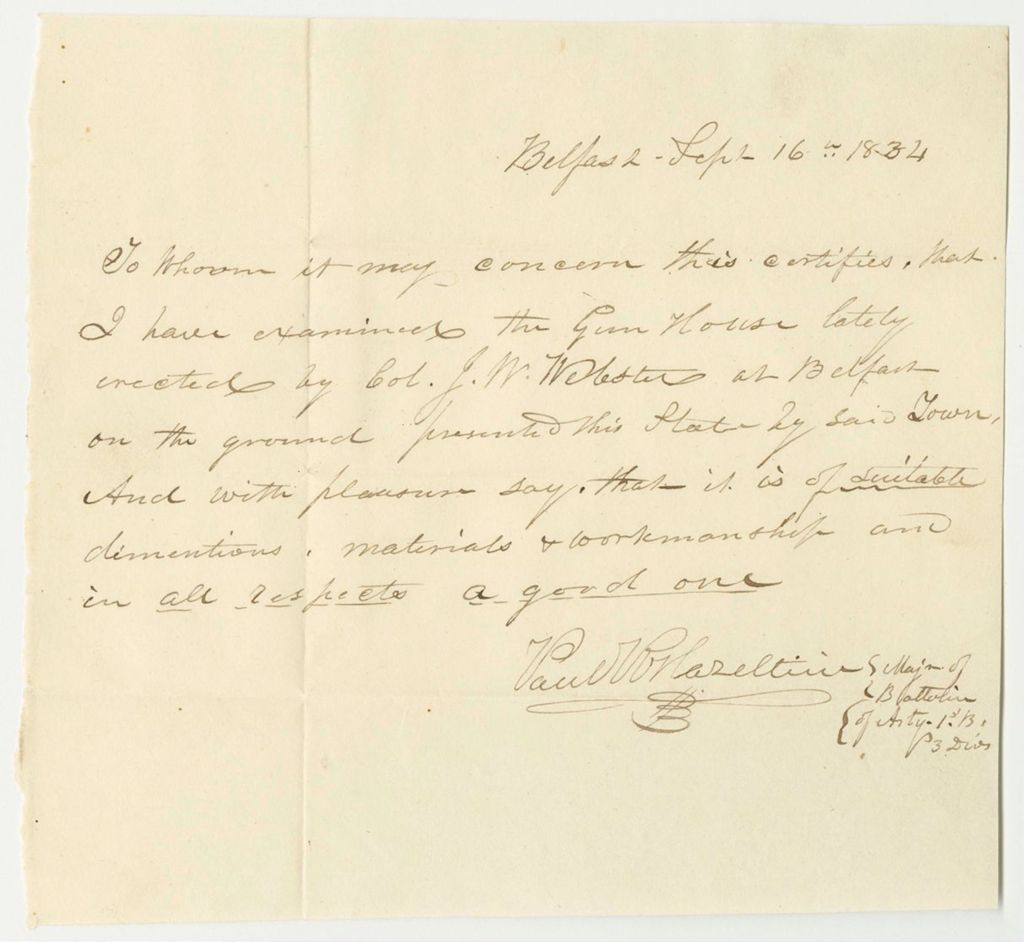 Belfast - Sept 16th 1834
To Whowm it may concern this certifies, that
I have examined the Gun House lately
erected by Col. J. W. Webster at Belfast
on the ground presented this State by said Town,
And with pleasure say, that it is of suitable
dimentions, materials & workmanship and
in all respects a good one
Paul R Hazeltine
Majr of
Battalin
of Arty. 1st B.
3 Divs